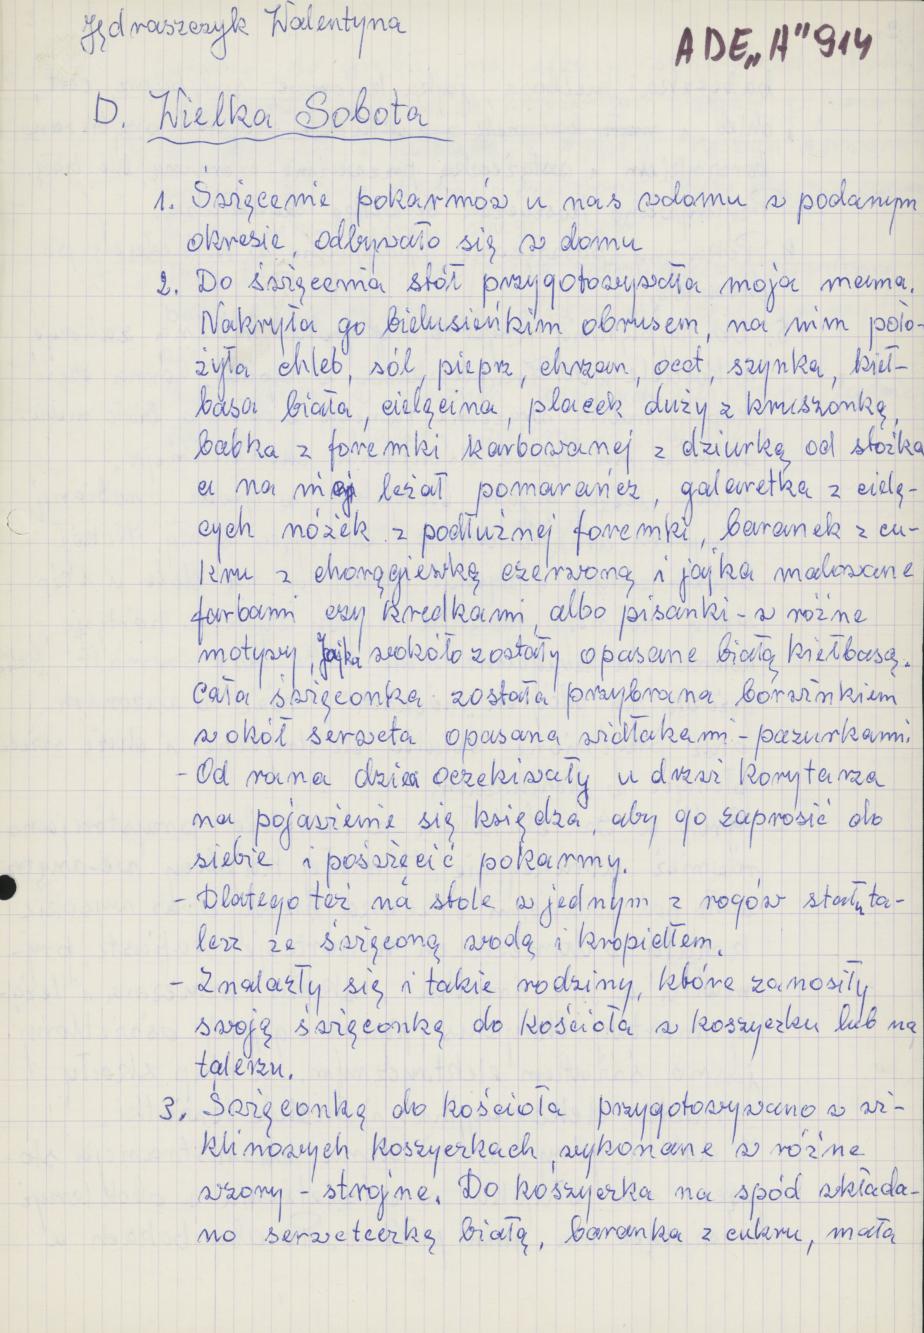 Jędraszczyk Walentyna
ADE„A" 914
D. Wielka Sobota
1. Święcenie pokarmów u nas wdomu w podanym
okresie, odbywało się w domu
2. Do święcenia stół przygotowywała moja mama.
Nakryła go bielusieńkim obrusem, na nim poło-
żyła chleb, sól, pieprz, chrzan, ocet, szynka, kieł-
basa biała, cielęcina, placek duży z kruszonką,
babka z foremki karbowanej z dziurką od stożka
a na niej leżał pomarańcz, galaretka z cielę-
cych nóżek z podłużnej foremki, baranek z cu-
kru z chorągiewką czerwoną i jajka malowane
farbami czy kredkami, albo pisanki - w różne
motywy, Jajka wokóło zostały opasane białą kiełbasą.
Cała święconka została przybrana borwinkiem
wokół serweta opasana widłakami - pazurkami.
- Od rana dzieci oczekiwały u drzwi korytarza
na pojawienie się księdza, aby go zaprosić do
siebie i poświęcić pokarmy.
- Dlatego też na stole w jednym z rogów stał ta-
lerz ze święconą wodą i kropidłem.
- Znalazły się i takie rodziny, które zanosiły
swoją święconką do kościoła w koszyczku lub na
talerzu.
3. Święconką do kościoła przygotowywano w wi-
klinowych koszyczkach, wykonane w różne
wzory - strojne. Do koszyczka na spód wkłada-
no serweteczką białą, baranka z cukru, mała